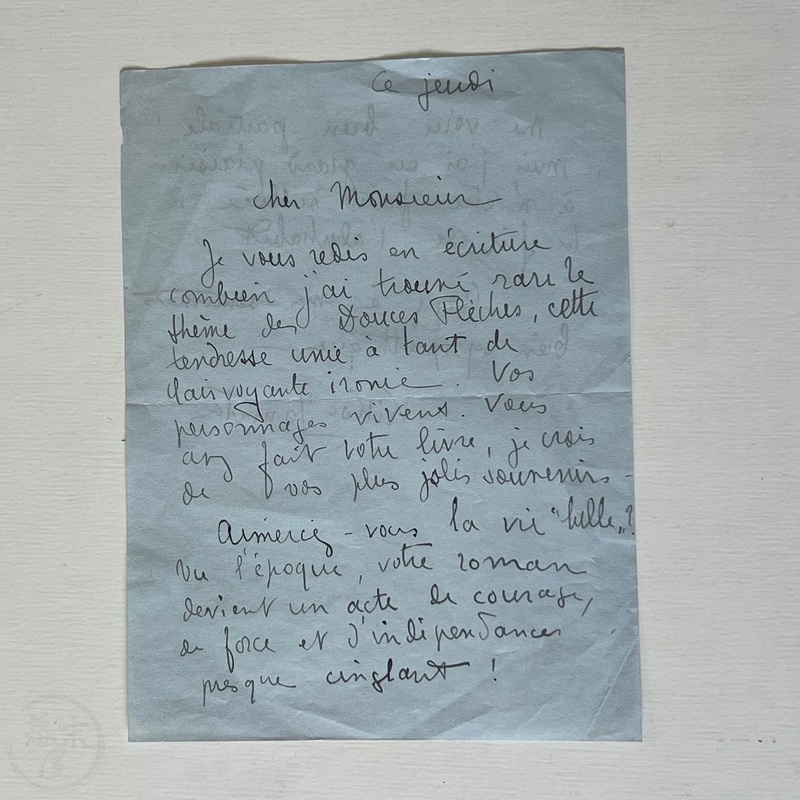 Ce jeudi
cher Monsieur
Je vous redis en écriture
combien j'ai trouvé rare le
thème des Douces Flèches, cette
tendresse unie à tant de
clairvoyante ironie. Vos
personnages vivent. Vous
avez fait votre livre, je crois
de vos plus jolis souvenirs -
Aimeriez-vous la vie "belle"?
Vu l'époque, votre roman
devient un acte de courage,
de force et d'indépendances
presque cinglant !